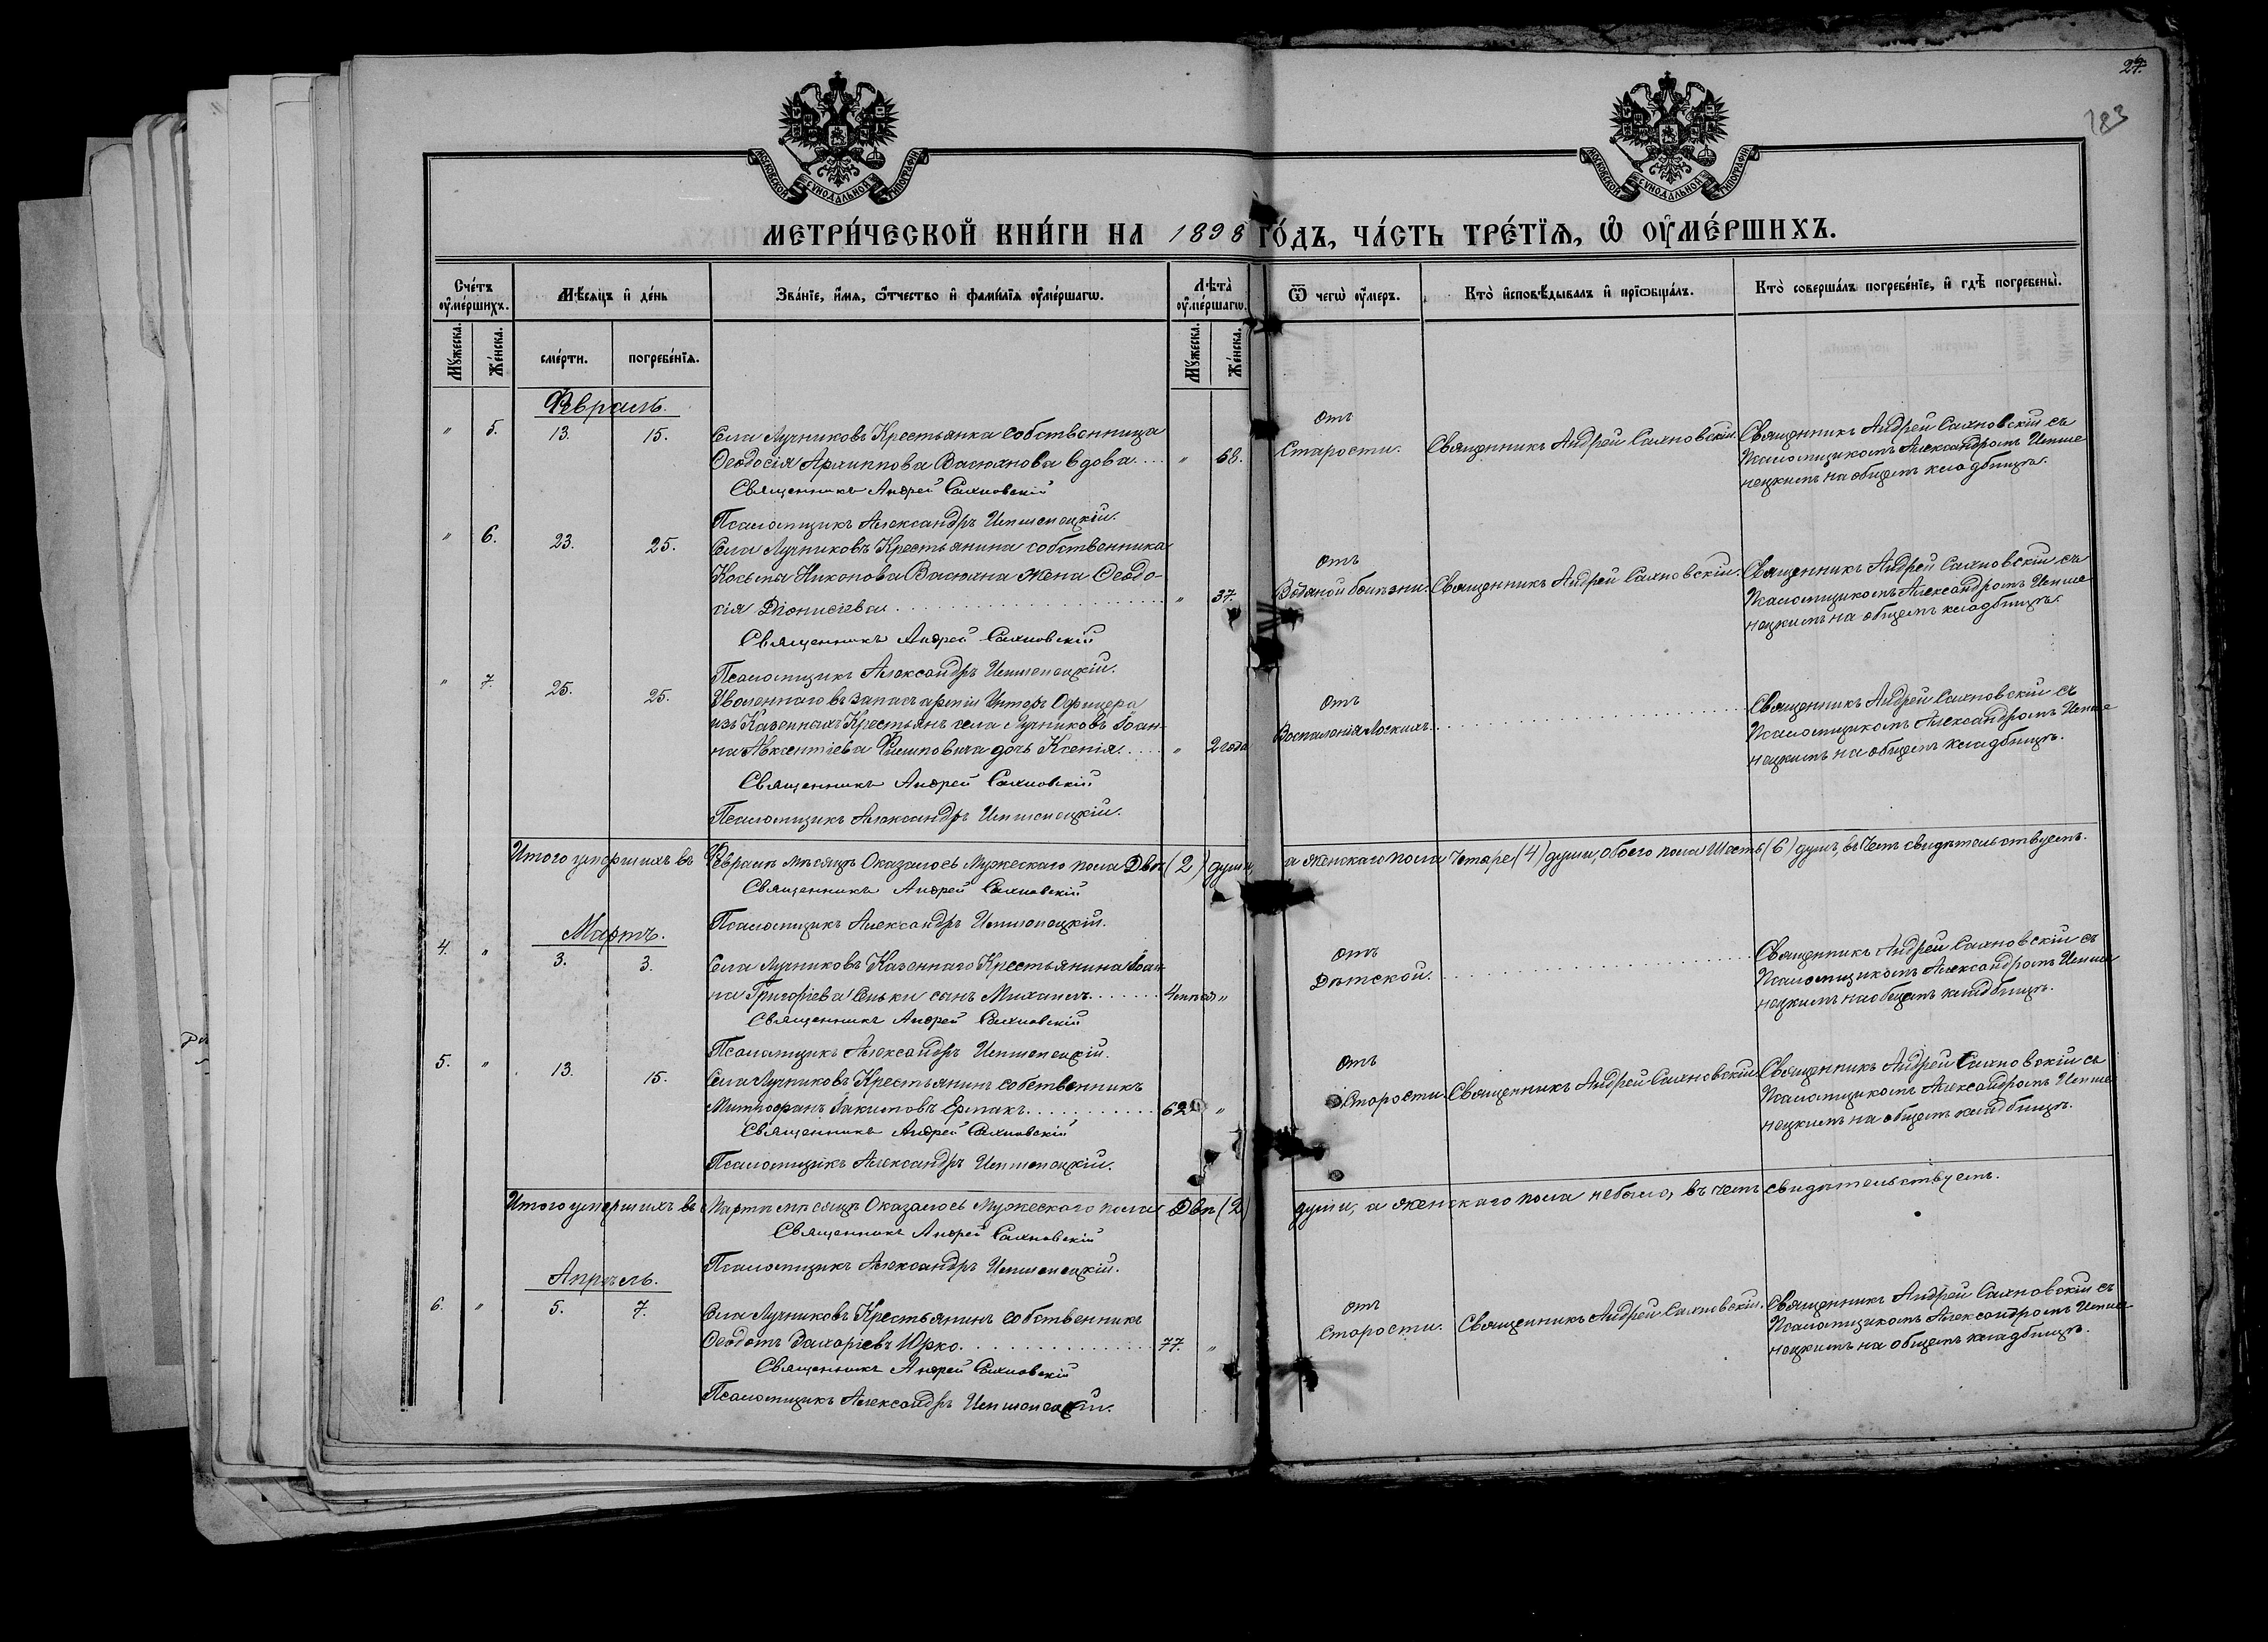 27.
183
МОСКОВСКОЙ СѴНОДАЛЬНОЙ ТИПОГРАФІИ
МОСКОВСКОЙ СѴНОДАЛЬНОЙ ТИПОГРАФІИ
МЕТРИ́ЧЕСКОЙ КНИ́ГИ НА 1898 ГО́ДЪ, ЧА́СТЬ ТРЕ́ТІѦ, Ѡ҆ ОУ҆МЕ́РШИХЪ.
Сче́тъ оу҆ме́ршихъ.
Мѣ́сяцъ и҆ де́нь
Зва́нїе, и҆́мѧ, ѻ҆́тчество и҆ фамѝлїѧ оу҆ме́ршагѡ.
Лѣта̀ оу҆ме́ршагѡ.
Ѿ чегѡ̀ оу҆́меръ.
Кто̀ и҆сповѣ́дывалъ и҆ прїѡбща́лъ.
Кто̀ соверша́лъ погребе́нїе, и҆ гдѣ̀ погребены̀.
Мꙋ́жеска.
Же́нска.
сме́рти.
погребе́нїѧ.
Мꙋ́жеска.
Же́нска.
Февраль.
" 5. 13. 15. Села Лучниковъ Крестьянка собственница
Ѳеодосія Архиппова Васюхнова вдова.... " 68.
Священникъ Андрей Сахновскій
Псаломщикъ Александръ Иепшенецкій.
отъ
Старости.
Священникъ Андрей Сахновскій.
Священникъ Андрей Сахновскій съ
Псаломщикомъ Александромъ Иепше
нецкимъ на общемъ кладбищѣ.
" 6. 23. 25. Села Лучниковъ Крестьянина собственника
Косьма Никонова Васюхна жена Ѳеодо-
сія Діонисіева " 37.
Священникъ Андрей Сахновскій
Псаломщикъ Александръ Иепшенецкій.
отъ
Водяной болѣзни.
Священникъ Андрей Сахновскій.
Священникъ Андрей Сахновскій съ
Псаломщикомъ Александромъ Иепше
нецкимъ на общемъ кладбищѣ.
" 7. 25. 25. Уволеннаго въ запасъ арміи Унтеръ Офицера
изъ Казенныхъ Крестьянъ села Лучниковъ Іоан-
на Авксентіева Филиповича дочь Ксенія.... " 2 года
Священникъ Андрей Сахновскій
Псаломщикъ Александръ Иепшенецкій.
отъ
Воспаленія Легкихъ.
Священникъ Андрей Сахновскій съ
Псаломщикомъ Александромъ Иепше
нецкимъ на общемъ кладбищѣ.
Итого умершихъ въ Февралѣ мѣсяцѣ Оказалось Мужескаго пола Двѣ (2) души, а женскаго пола Четыре (4) души, обоего пола Шесть (6) душъ, въ чемъ свидѣтельствуемъ.
Священникъ Андрей Сахновскій
Псаломщикъ Александръ Иепшенецкій.
Мартъ.
4. " 3. 3. Села Лучниковъ Казеннаго Крестьянина Іоан-
на Григоріева Сеньки сынъ Михаилъ
Священникъ Андрей Сахновскій
Псаломщикъ Александръ Иепшенецкій.
отъ
Дѣтской.
Священникъ Андрей Сахновскій съ
Псаломщикомъ Александромъ Иепше
нецкимъ на общемъ кладбищѣ.
5. " 13. 15. Села Лучниковъ Крестьянинъ собственникъ
Митрофанъ Іакимовъ Ермакъ 62 "
Священникъ Андрей Сахновскій
Псаломщикъ Александръ Иепшенецкій.
отъ
Старости.
Священникъ Андрей Сахновскій
Священникъ Андрей Сахновскій съ
Псаломщикомъ Александромъ Иепше
нецкимъ на общемъ кладбищѣ.
Итого умершихъ въ Мартѣ мѣсяцѣ Оказалось Мужескаго пола Двѣ (2) души, а женскаго пола небыло, въ чемъ свидѣтельствуемъ.
Священникъ Андрей Сахновскій
Псаломщикъ Александръ Иепшенецкій.
Апрѣль.
6. " 5. 7. Села Лучниковъ Крестьянинъ собственникъ
Ѳеодотъ Захаріевъ Юрко 77. "
Священникъ Андрей Сахновскій
Псаломщикъ Александръ Иепшенецкій.
отъ
Старости.
Священникъ Андрей Сахновскій.
Священникъ Андрей Сахновскій съ
Псаломщикомъ Александромъ Иепше
нецкимъ на общемъ кладбищѣ.